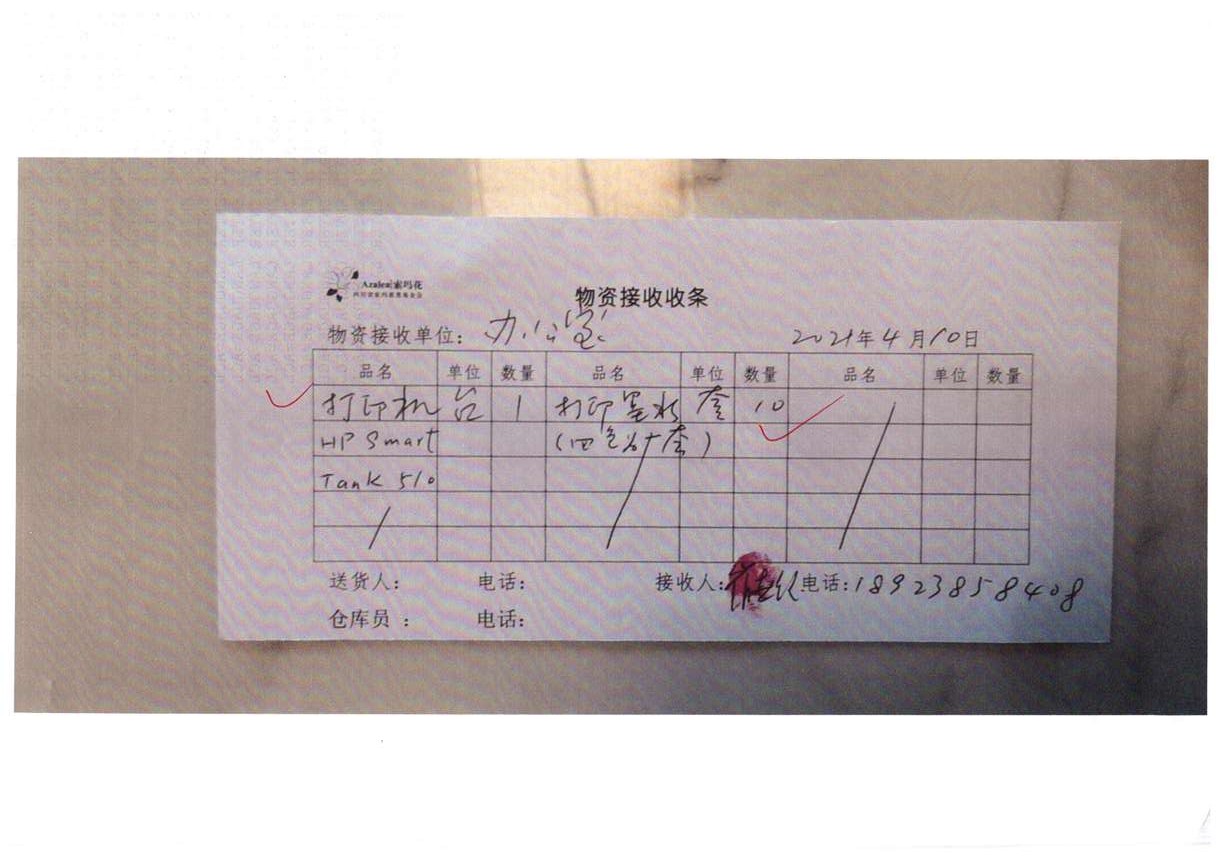 Azalea 索玛花
四川省索玛慈善基金会
物资接收收条
物资接收单位： 办公室 2021年4月10日
品名 单位 数量 品名 单位 数量 品名 单位 数量
打印机 台 1 打印墨水 套 10
HP Smart (四色为一套)
Tank 510
送货人： 电话： 接收人： 电话：18923858408
仓库员 ： 电话：